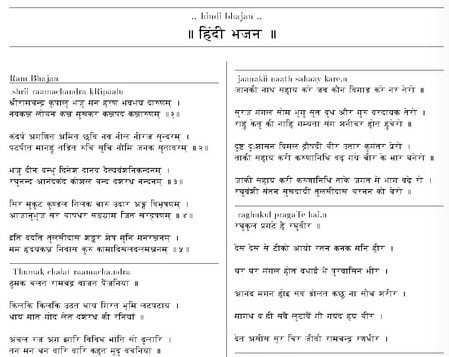 .. hindi bhajan ..
॥ हिंदी भजन ॥
Ram Bhajan
shrii raamachandra kRipaalu
श्रीरामचन्द्र कृपालु भजु मन हरण भवभय दारुणम् ।
नवकञ्ज लोचन कञ्ज मुखकर कञ्जपद कञ्जारुणम् ॥१॥
कंदर्प अगणित अमित छवि नव नील नीरज सुन्दरम् ।
पटपीत मानहुं तडित रुचि सुचि नौमि जनक सुतावरम् ॥२॥
भजु दीन बन्धु दिनेश दानव दैत्यवंशनिकन्दनम् ।
रघुनन्द आनंदकंद कोशल चन्द दशरथ नन्दनम् ॥३॥
सिर मुकुट कुण्डल तिलक चारु उदार अङ्ग विभूषणम् ।
आजानुभुज सर चापधर सङ्ग्राम जित खरदूषणम् ॥४॥
इति वदति तुलसीदास शङ्कर शेष मुनि मनरञ्जनम् ।
मम हृदयकञ्ज निवास कुरु कामादिखलदलमञ्जनम् ॥५॥
Thumak chalat raamachandra
ठुमक चलत रामचंद्र बाजत पैंजनियां ।
किलकि किलकि उठत धाय गिरत भूमि लटपटाय ।
धाय मात गोद लेत दशरथ की रनियां ।
अंचल रज अंग झारि विविध भांति सो दुलारि ।
तन मन धन वारि वारि कहत मृदु बचनियां ।
jaanakii naath sahaay kare.n
जानकी नाथ सहाय करें जब कौन बिगाड़ करे नर तेरो ।
सुरज मंगल सोम भृगु सुत बुध और गुरु वरदायक तेरो ।
राहु केतु की नाहिं गम्यता संग शनीचर होत हुचेरो ।
दुष्ट दु:शासन विमल द्रौपदी चीर उतार कुमंतर प्रेरो ।
ताकी सहाय करी करुणानिधि बढ़ गये चीर के भार घनेरो ।
जाकी सहाय करी करुणानिधि ताके जगत में भाग बढ़े रो ।
रघुवंशी संतन सुखदायी तुलसीदास चरनन को चेरो ।
raghukul pragaTe hai.n
रघुकुल प्रगटे हैं रघुबीर ।
देस देस से टीको आयो रतन कनक मनि हीर ।
घर घर मंगल होत बधाई भै पुरवासिन भीर ।
आनंद मगन होइ सब डोलत कछु ना सौध शरीर ।
मागध बंदी सबै लुटावैं गौ गयंद हय चीर ।
देत असीस सूर चिर जीवौ रामचन्द्र रणधीर ।